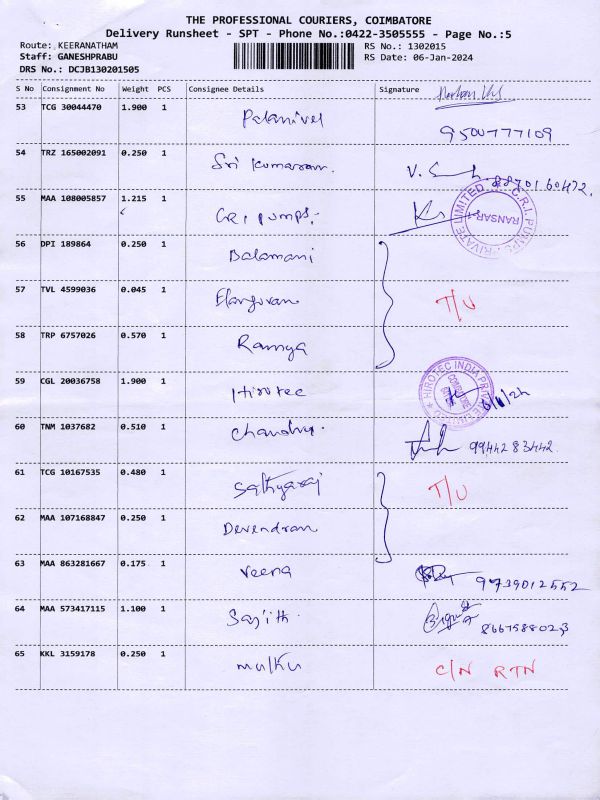 THE PROFESSIONAL COURIERS, COIMBATORE
Delivery Runsheet - SPT - Phone No.:0422-3505555 - Page No.:5
Route: KEERANATHAM RS No.: 1302015
Staff: GANESHPRABU RS Date: 06-Jan-2024
DRS No.: DCJB130201505
S No Consignment No Weight PCS Consignee Details Signature
53 TCG 30044470 1.900 1 Palanivel 9500777109
54 TRZ 165002091 0.250 1 Sri Kumaran. V. 8870160472.
55 MAA 108005857 1.215 1 CRI pumps. C.R.I. PUMPS PRIVATE LIMITED
56 DPI 189864 0.250 1 Balamani
57 TVL 4599036 0.045 1 Elanguvan T/U
58 TRP 6757026 0.570 1 Ramya
59 CGL 20036758 1.900 1 Hirotec HIROTEC INDIA PRIVATE LIMITED COIMBATORE 6/1/24
60 TNM 1037682 0.510 1 Chandru. 9944283442.
61 TCG 10167535 0.480 1 Sathyaraj T/U
62 MAA 107168847 0.250 1 Devendran
63 MAA 863281667 0.175 1 Veena 9739012552
64 MAA 573417115 1.100 1 Sajith. 8667588023
65 KKL 3159178 0.250 1 Mutku C/N RTN